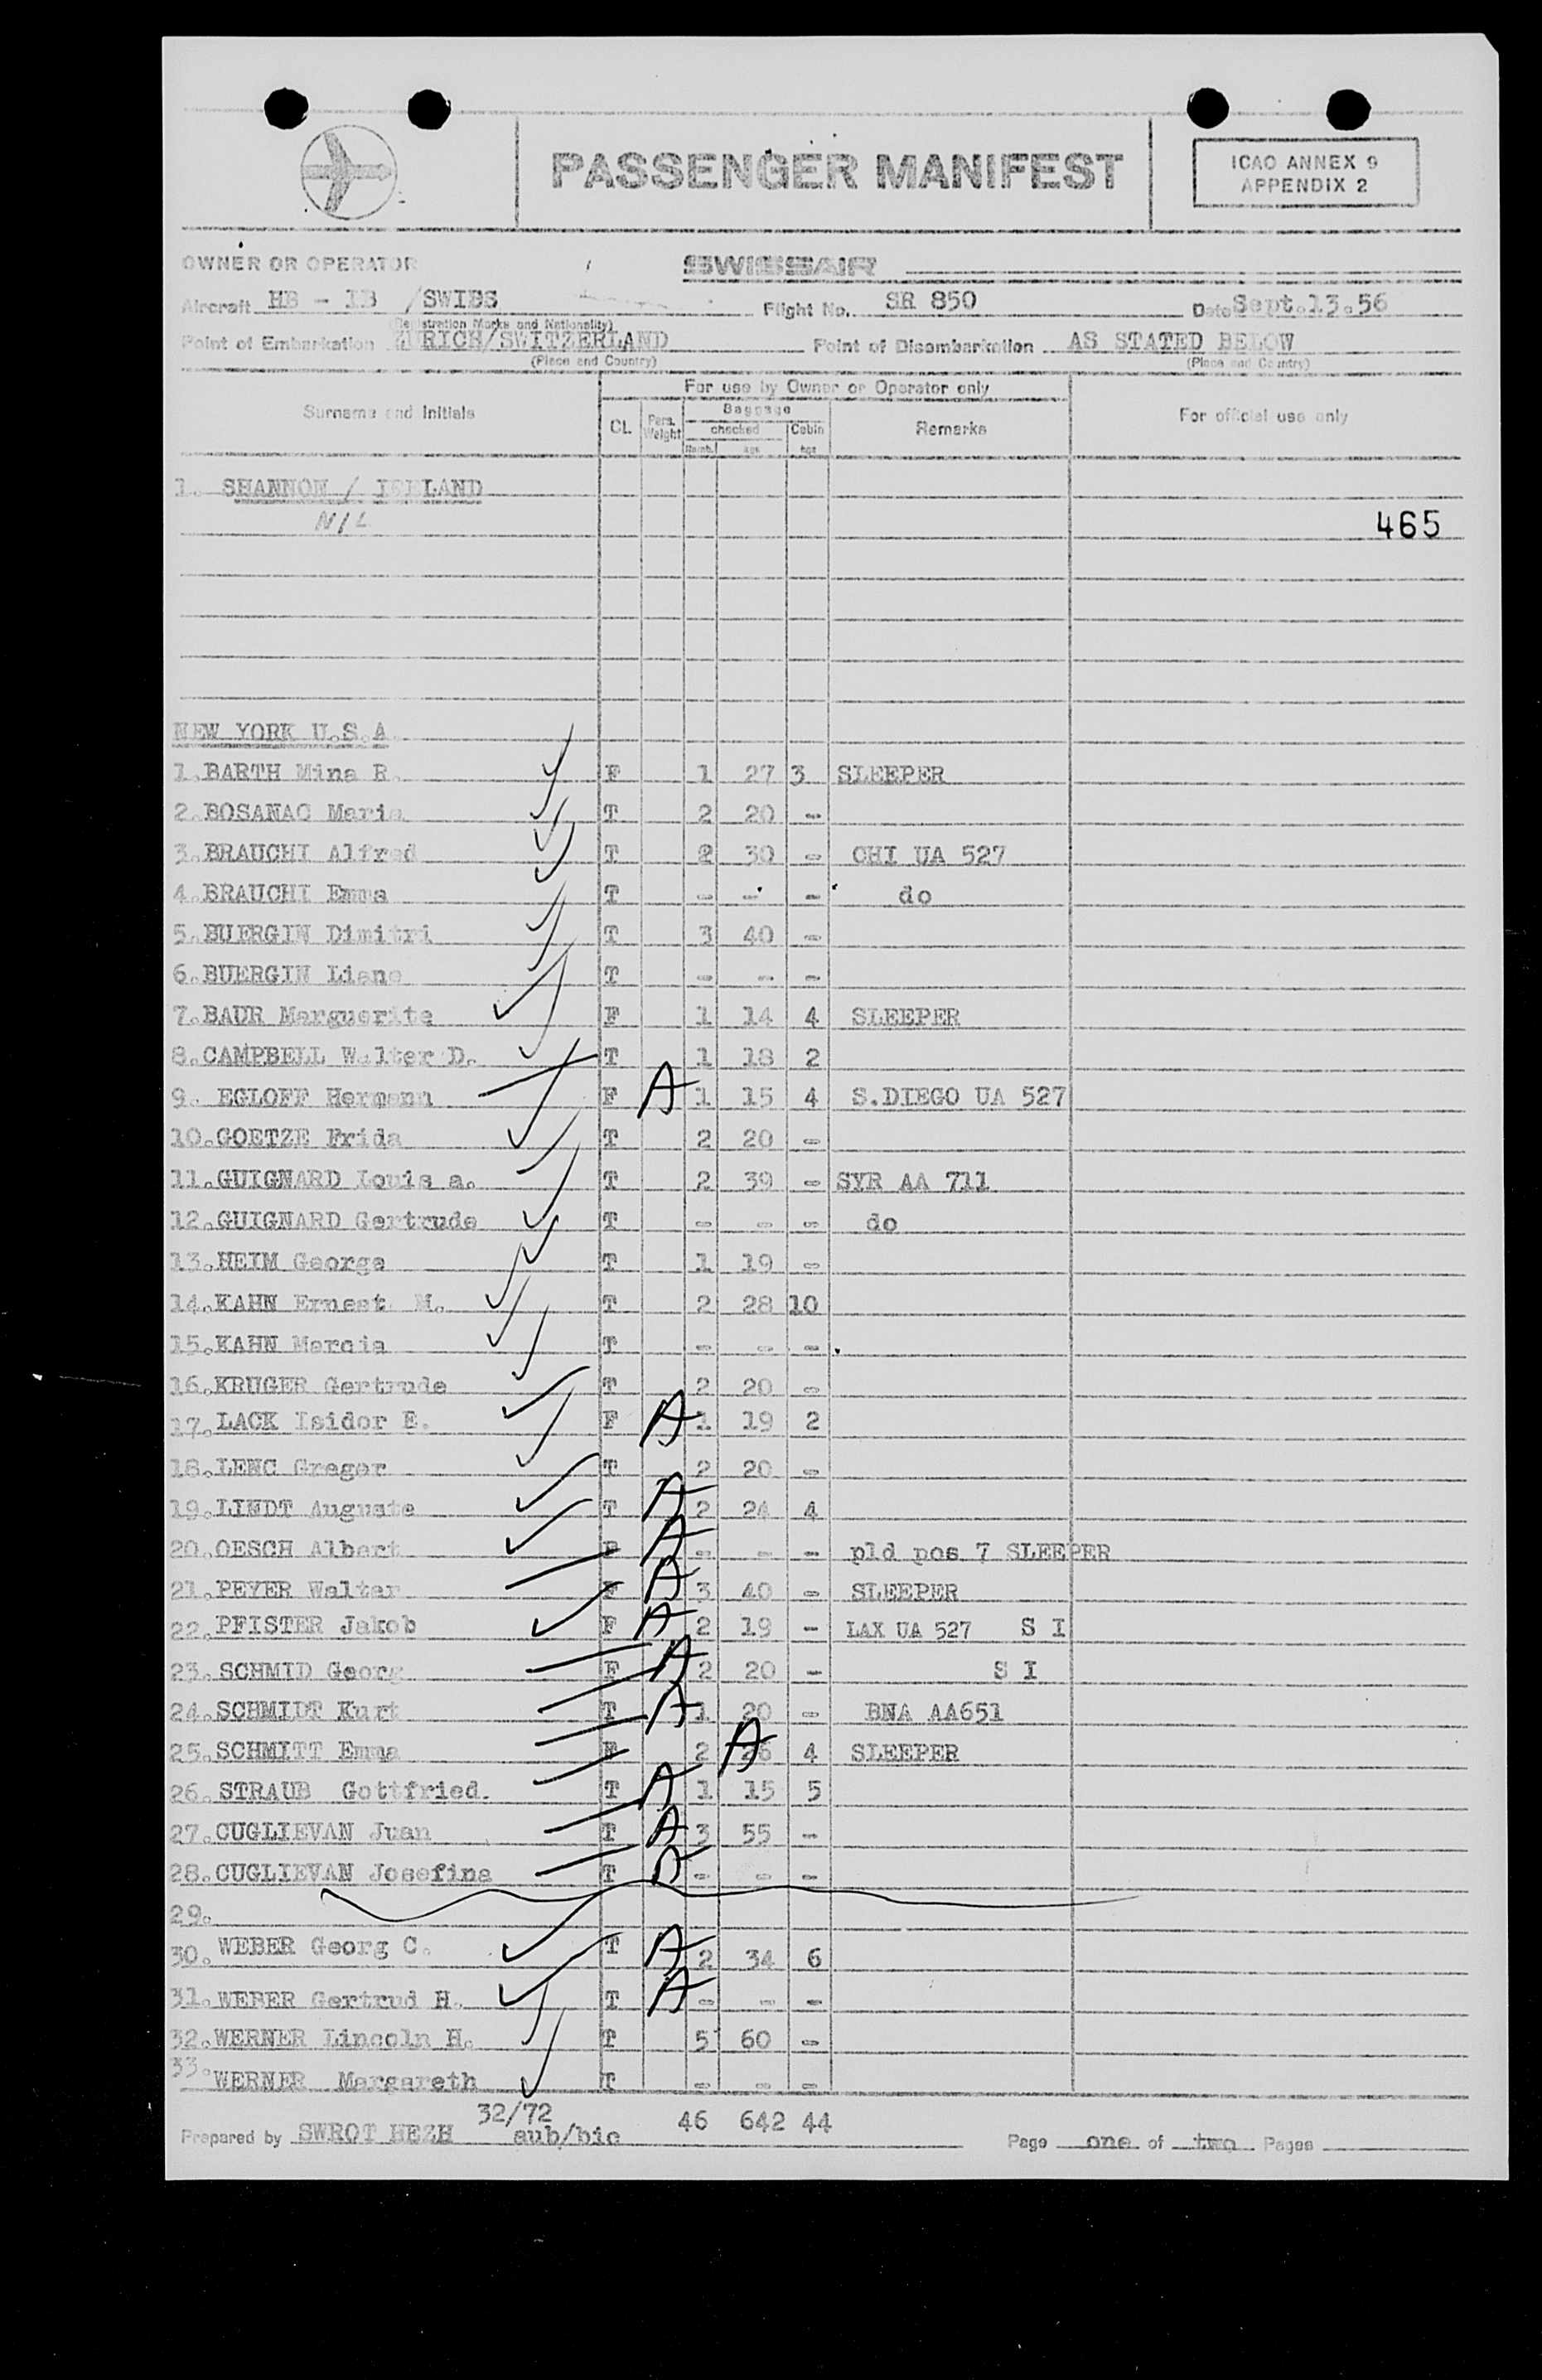 PASSENGER MANIFEST
ICAO ANNEX 9
APPENDIX 2
OWNER OR OPERATOR SWISSAIR
Aircraft HB - IB /SWISS Flight No. SR 850 Date Sept.13.56
(Registration Marks and Nationality)
Point of Embarkation ZURICH/SWITZERLAND Point of Disembarkation AS STATED BELOW
(Place and Country) (Place and Country)
For use by Owner or Operator only
Surname and Initials CL. Pers. Weight Baggage checked Numb. kgs Cabin kgs Remarks For official use only
1. SHANNON / IRELAND
NIL 465
NEW YORK U.S.A.
1.BARTH Mina R. F 1 27 3 SLEEPER
2.BOSANAC Maria T 2 20 -
3.BRAUCHI Alfred T 2 30 - CHI UA 527
4.BRAUCHI Emma T - - - do
5.BUERGIN Dimitri T 3 40 -
6.BUERGIN Liane T - - -
7.BAUR Marguerite F 1 14 4 SLEEPER
8.CAMPBELL Walter D. T 1 18 2
9. EGLOFF Hermann F A 1 15 4 S.DIEGO UA 527
10.GOETZE Frida T 2 20 -
11.GUIGNARD Louis a. T 2 39 - SYR AA 711
12.GUIGNARD Gertrude T - - - do
13.HEIM George T 1 19 -
14.KAHN Ernest M. T 2 28 10
15.KAHN Marcia T - - -
16.KRUGER Gertrude T 2 20 -
17.LACK Isidor E. F A 1 19 2
18.LENC Greger T 2 20 -
19.LINDT Auguste T A 2 24 4
20.OESCH Albert F A - - - pld pos 7 SLEEPER
21.PEYER Walter F A 3 40 - SLEEPER
22.PFISTER Jakob F A 2 19 - LAX UA 527 S I
23.SCHMID Georg F A 2 20 - S I
24.SCHMIDT Kurt T A 1 20 - BNA AA651
25.SCHMITT Emma F 2 A 26 4 SLEEPER
26.STRAUB Gottfried. T A 1 15 5
27.CUGLIEVAN Juan T A 3 55 -
28.CUGLIEVAN Josefina T A - - -
29.
30. WEBER Georg C. T A 2 34 6
31.WEBER Gertrud H. T A - - -
32.WERNER Lincoln H. T 5 60 -
33. WERNER Margareth T - - -
32/72 46 642 44
Prepared by SWROT HEZH aub/bic Page one of two Pages